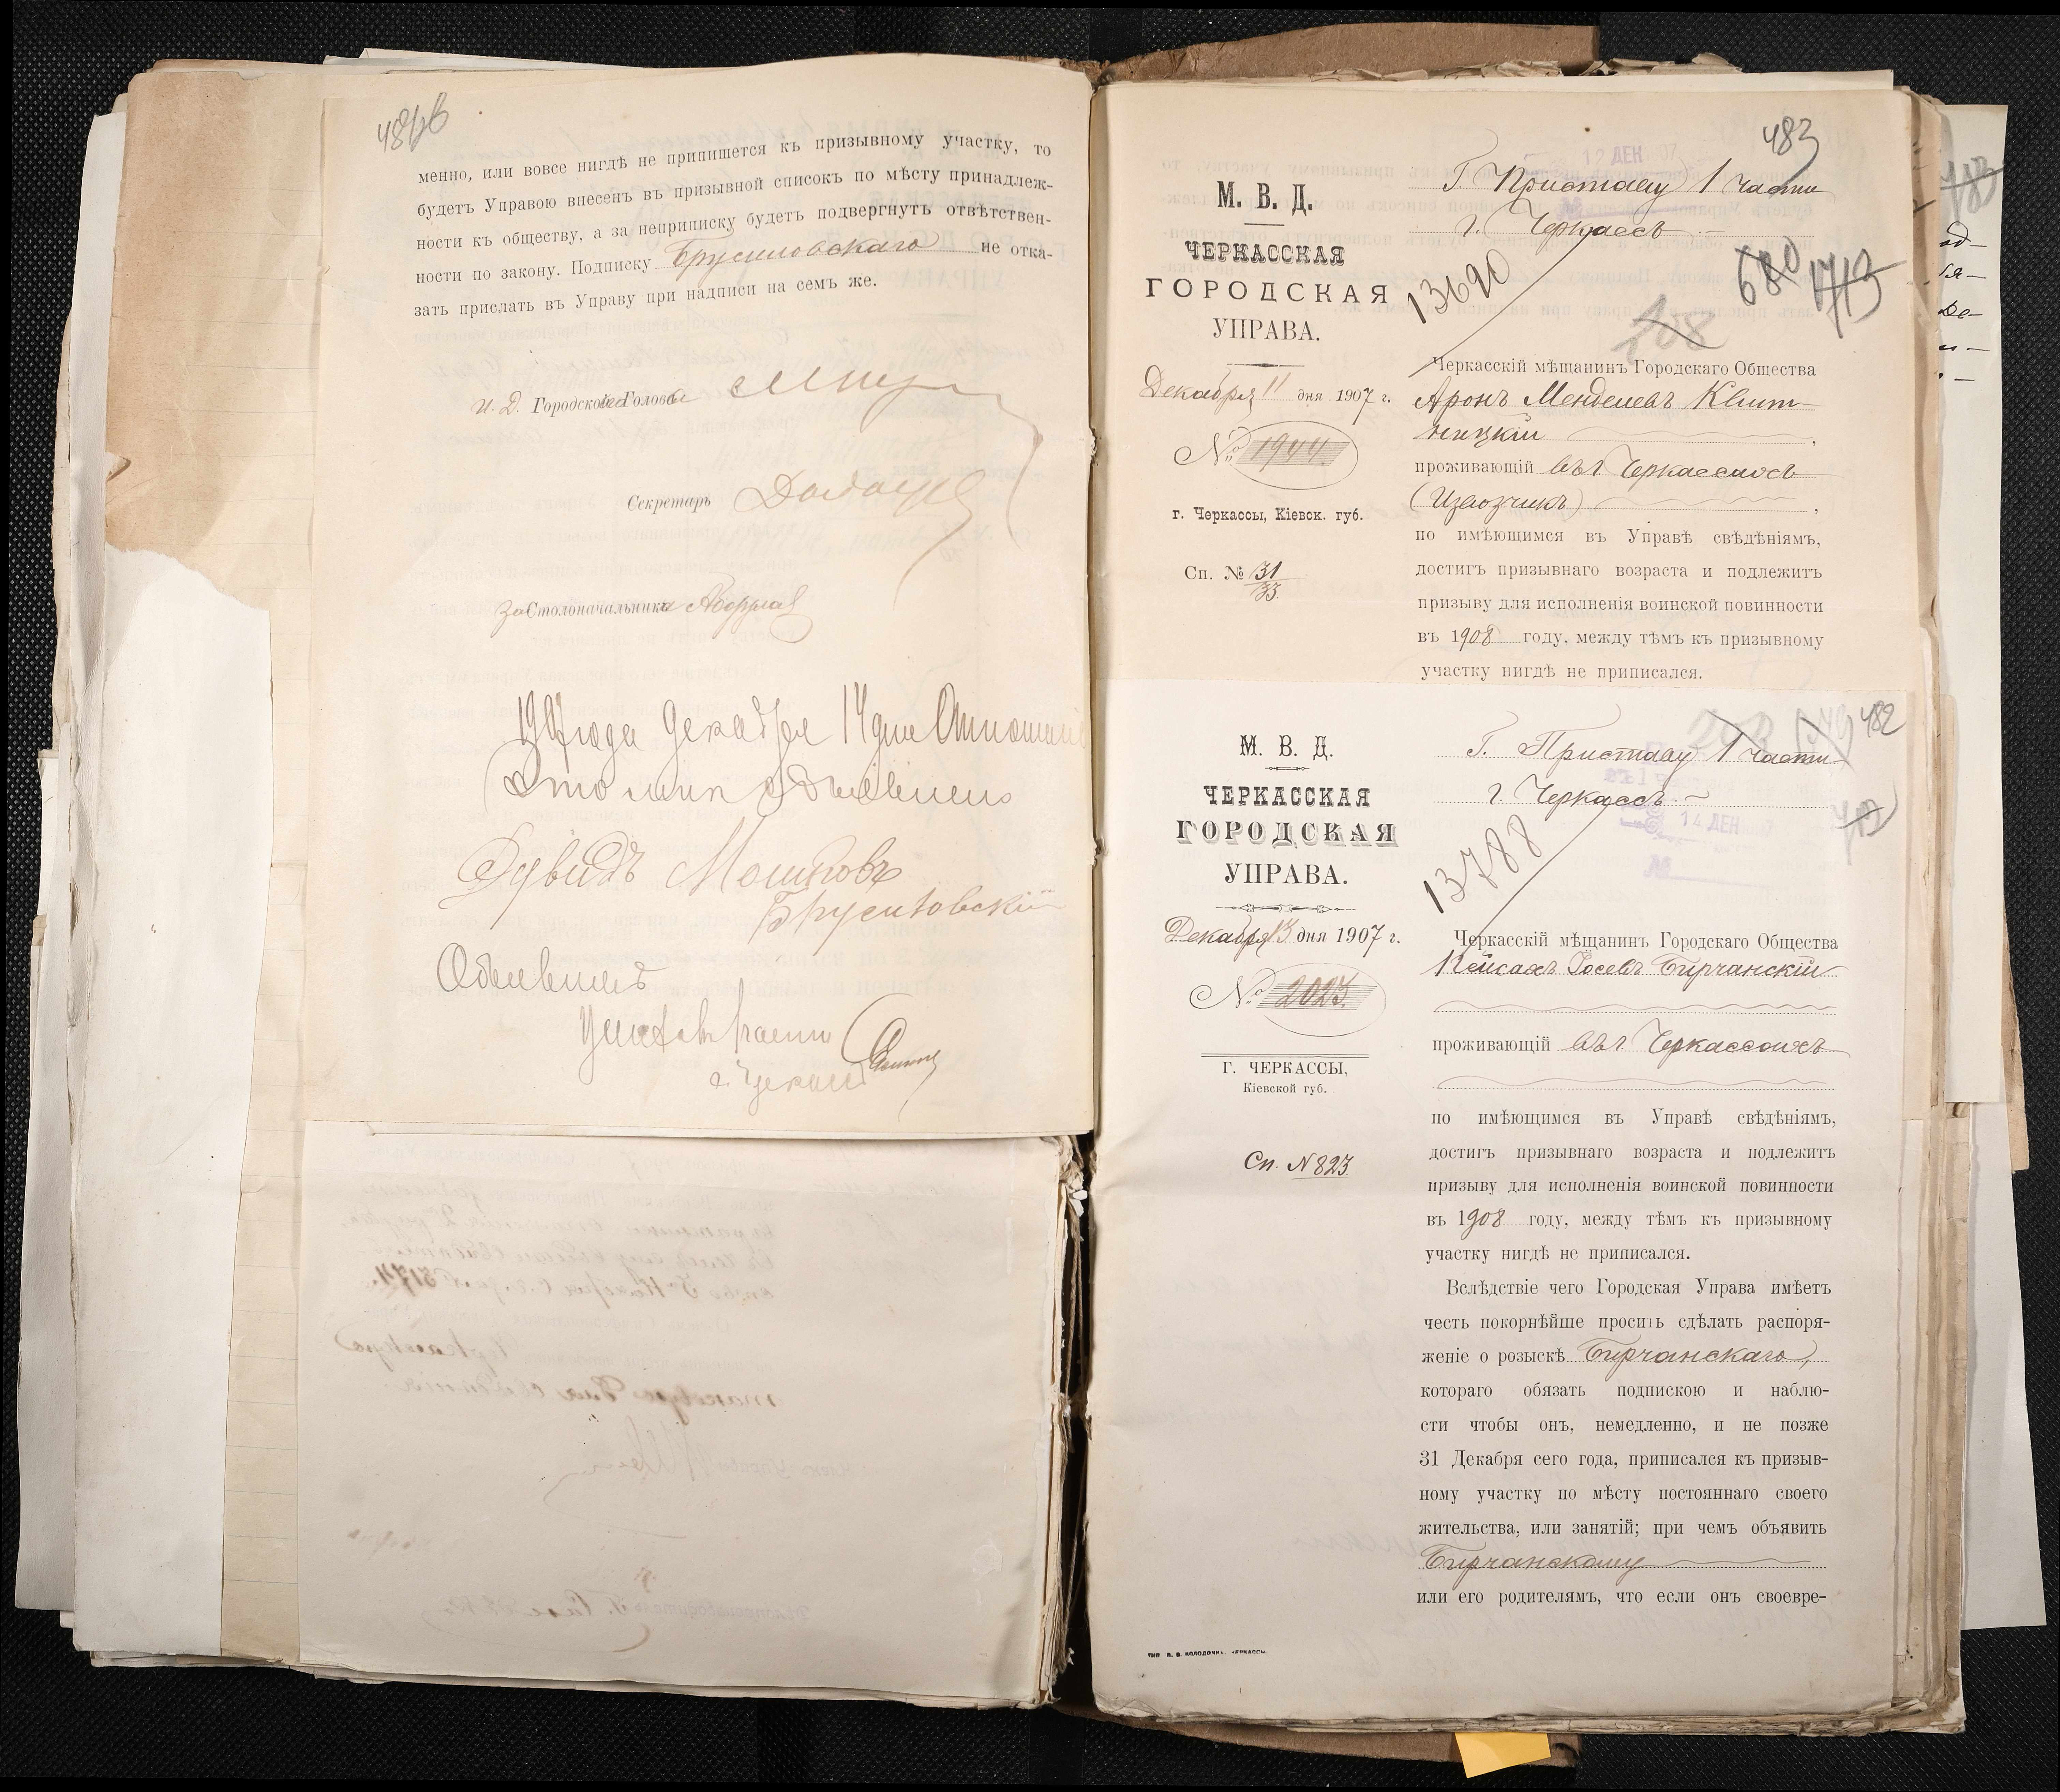 менно, или вовсе нигдѣ не припишется къ призывному участку, то
будетъ Управою внесенъ въ призывной списокъ по мѣсту принадлеж-
ности къ обществу, а за неприписку будетъ подвергнутъ отвѣтствен-
ности по закону. Подписку Брусиловскаго не отка-
зать прислать въ Управу при надписи на семъ же.
И. Д. Городского Головы
Секретарь
За Столоначальника
1907 года Декабря 14 дня
Мошковъ
Брусиловскій
483
12 ДЕН 1907
Г. Приставу 1 части
г. Черкассъ.
13690
680
1713
М. В. Д.
ЧЕРКАССКАЯ
ГОРОДСКАЯ
УПРАВА.
Декабря 11 дня 1907 г.
№ 1944.
г. Черкассы, Кіевск. губ.
Сп. № 31/33
Черкасскій мѣщанинъ Городскаго Общества
Аронъ Менделевъ Квит-
ницкій,
проживающій въ г. Черкассахъ
(Извозчикъ),
по имѣющимся въ Управѣ свѣдѣніямъ,
достигъ призывнаго возраста и подлежитъ
призыву для исполненія воинской повинности
въ 1908 году, между тѣмъ къ призывному
участку нигдѣ не приписался.
482
Г. Приставу 1 части
г. Черкассъ.
14 ДЕН
№
13788
М. В. Д.
ЧЕРКАССКАЯ
ГОРОДСКАЯ
УПРАВА.
Декабря 13 дня 1907 г.
№ 2023.
Г. ЧЕРКАССЫ,
Кіевской губ.
Сп. N 823
Черкасскій мѣщанинъ Городскаго Общества
Кейсахъ Іосевъ Бирчанскій
проживающій въ г. Черкассахъ
по имѣющимся въ Управѣ свѣдѣніямъ,
достигъ призывнаго возраста и подлежитъ
призыву для исполненія воинской повинности
въ 1908 году, между тѣмъ къ призывному
участку нигдѣ не приписался.
Вслѣдствіе чего Городская Управа имѣетъ
честь покорнѣйше просить сдѣлать распоря-
женіе о розыскѣ Бирчанскаго,
котораго обязать подпискою и наблю-
сти чтобы онъ, немедленно, и не позже
31 Декабря сего года, приписался къ призыв-
ному участку по мѣсту постояннаго своего
жительства, или занятій; при чемъ объявить
Бирчанскому
или его родителямъ, что если онъ своевре-